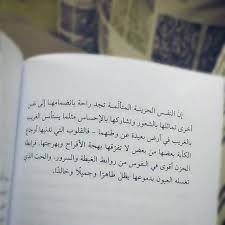 إن النفس الحزينة المتألمة تجد راحة بانضمامها إلى نفس
أخرى تماثلها بالشعور وتشاركها بالإحساس مثلما يستأنس الغريب
بالغريب في أرض بعيدة عن وطنهما – فالقلوب التي تدنيها أوجاع
الكآبة بعضها من بعض لا تفرقها بهجة الأفراح وبهرجتها. فرابطة
الحزن أقوى في النفوس من روابط الغبطة والسرور. والحب الذي
تغسله العيون بدموعها يظل طاهرًا وجميلًا وخالدًا.